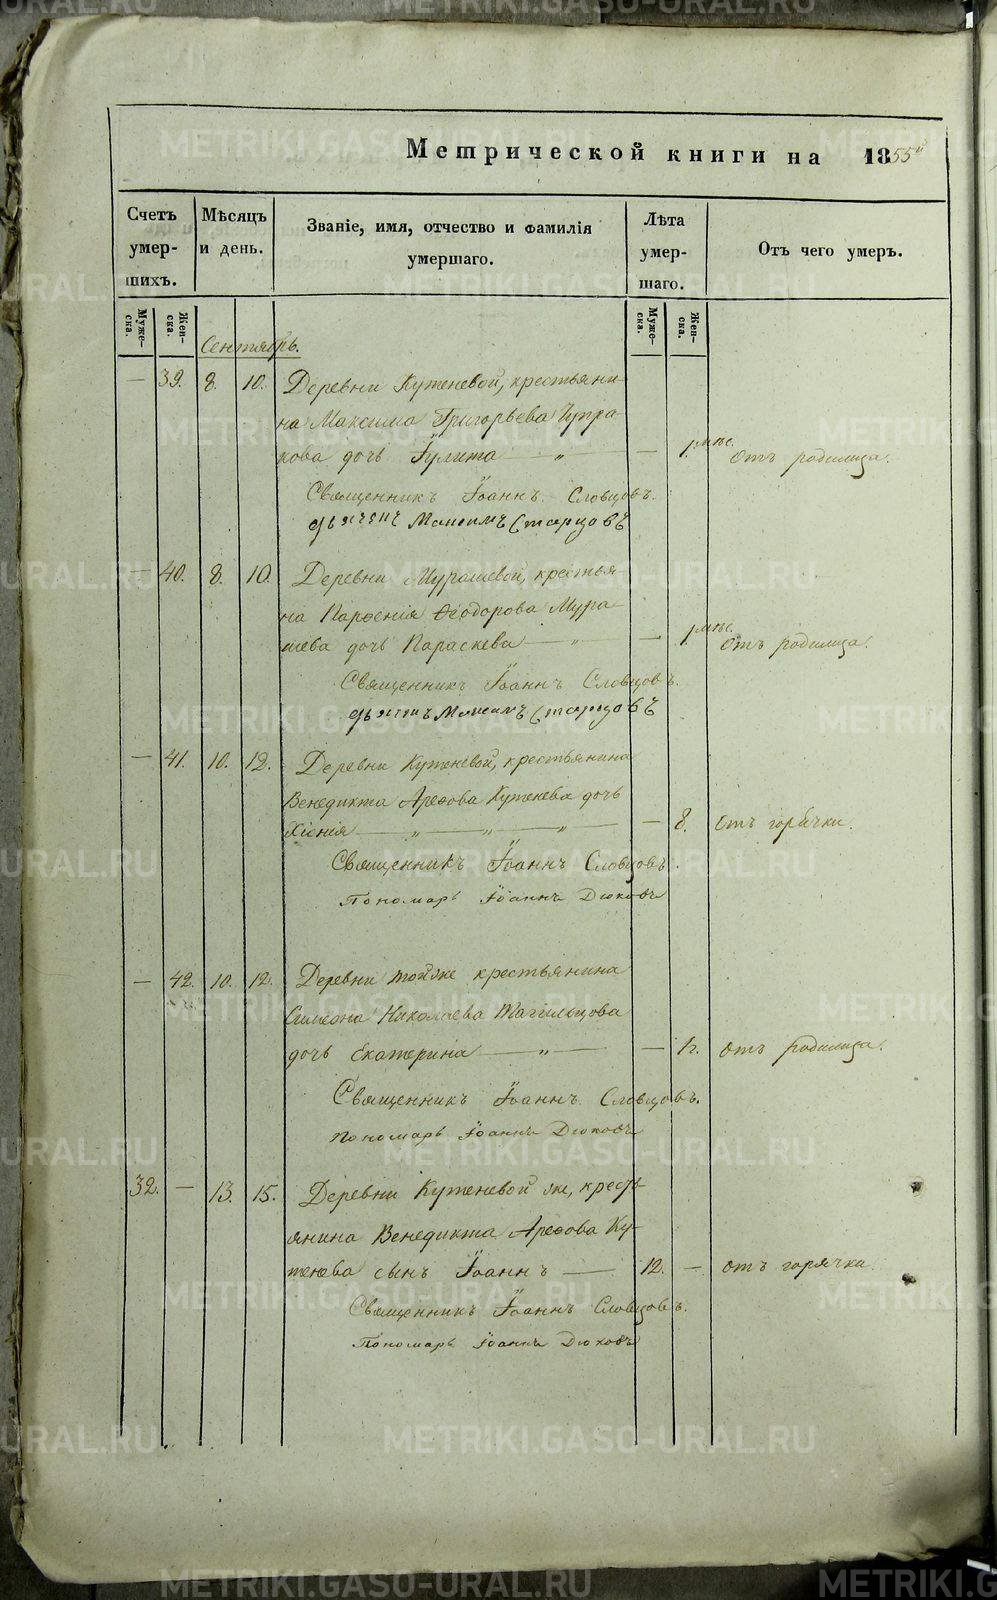 Метрической книги на 1855й
Счетъ умер-шихъ.
Мѣсяцъ и день.
Званіе, имя, отчество и фамилія умершаго.
Лѣта умер-шаго.
Отъ чего умеръ.
Муже-ска.
Жен-ска.
Муже-ска.
Жен-ска.
Сентябрь.
— 39. 8. 10. Деревни Кутеневой, крестьяни-
на Максима Григорьева Чупра-
кова дочь Іулита — „ — 1. мѣс. отъ родимца.
Священникъ Іоаннъ Словцовъ.
дьячекъ Максимъ Старцовъ
— 40. 8. 10. Деревни Мурашевой, крестья-
на Парѳенія Ѳеодорова Мура-
шева дочь Параскева — „ — 1. мѣс. отъ родимца.
Священникъ Іоаннъ Словцовъ.
дьячекъ Максимъ Старцовъ
— 41. 10. 12. Деревни Кутеневой, крестьянина
Венедикта Ареѳова Кутенева дочь
Ксенія — „ — „ — „ — 8. отъ горячки.
Священникъ Іоаннъ Словцовъ.
Пономарь Іоаннъ Дюковъ
— 42. 10. 12. Деревни тойже крестьянина
Симеона Николаева Тагильцова
дочь Екатерина — „ — 1 г. отъ родимца.
Священникъ Іоаннъ Словцовъ.
Пономарь Іоаннъ Дюковъ
32. — 13. 15. Деревни Кутеневой же, кресть-
янина Венедикта Ареѳова Ку-
тенева сынъ Іоаннъ — 12. — отъ горячки.
Священникъ Іоаннъ Словцовъ.
Пономарь Іоаннъ Дюковъ
METRIKI.GASO-URAL.RU